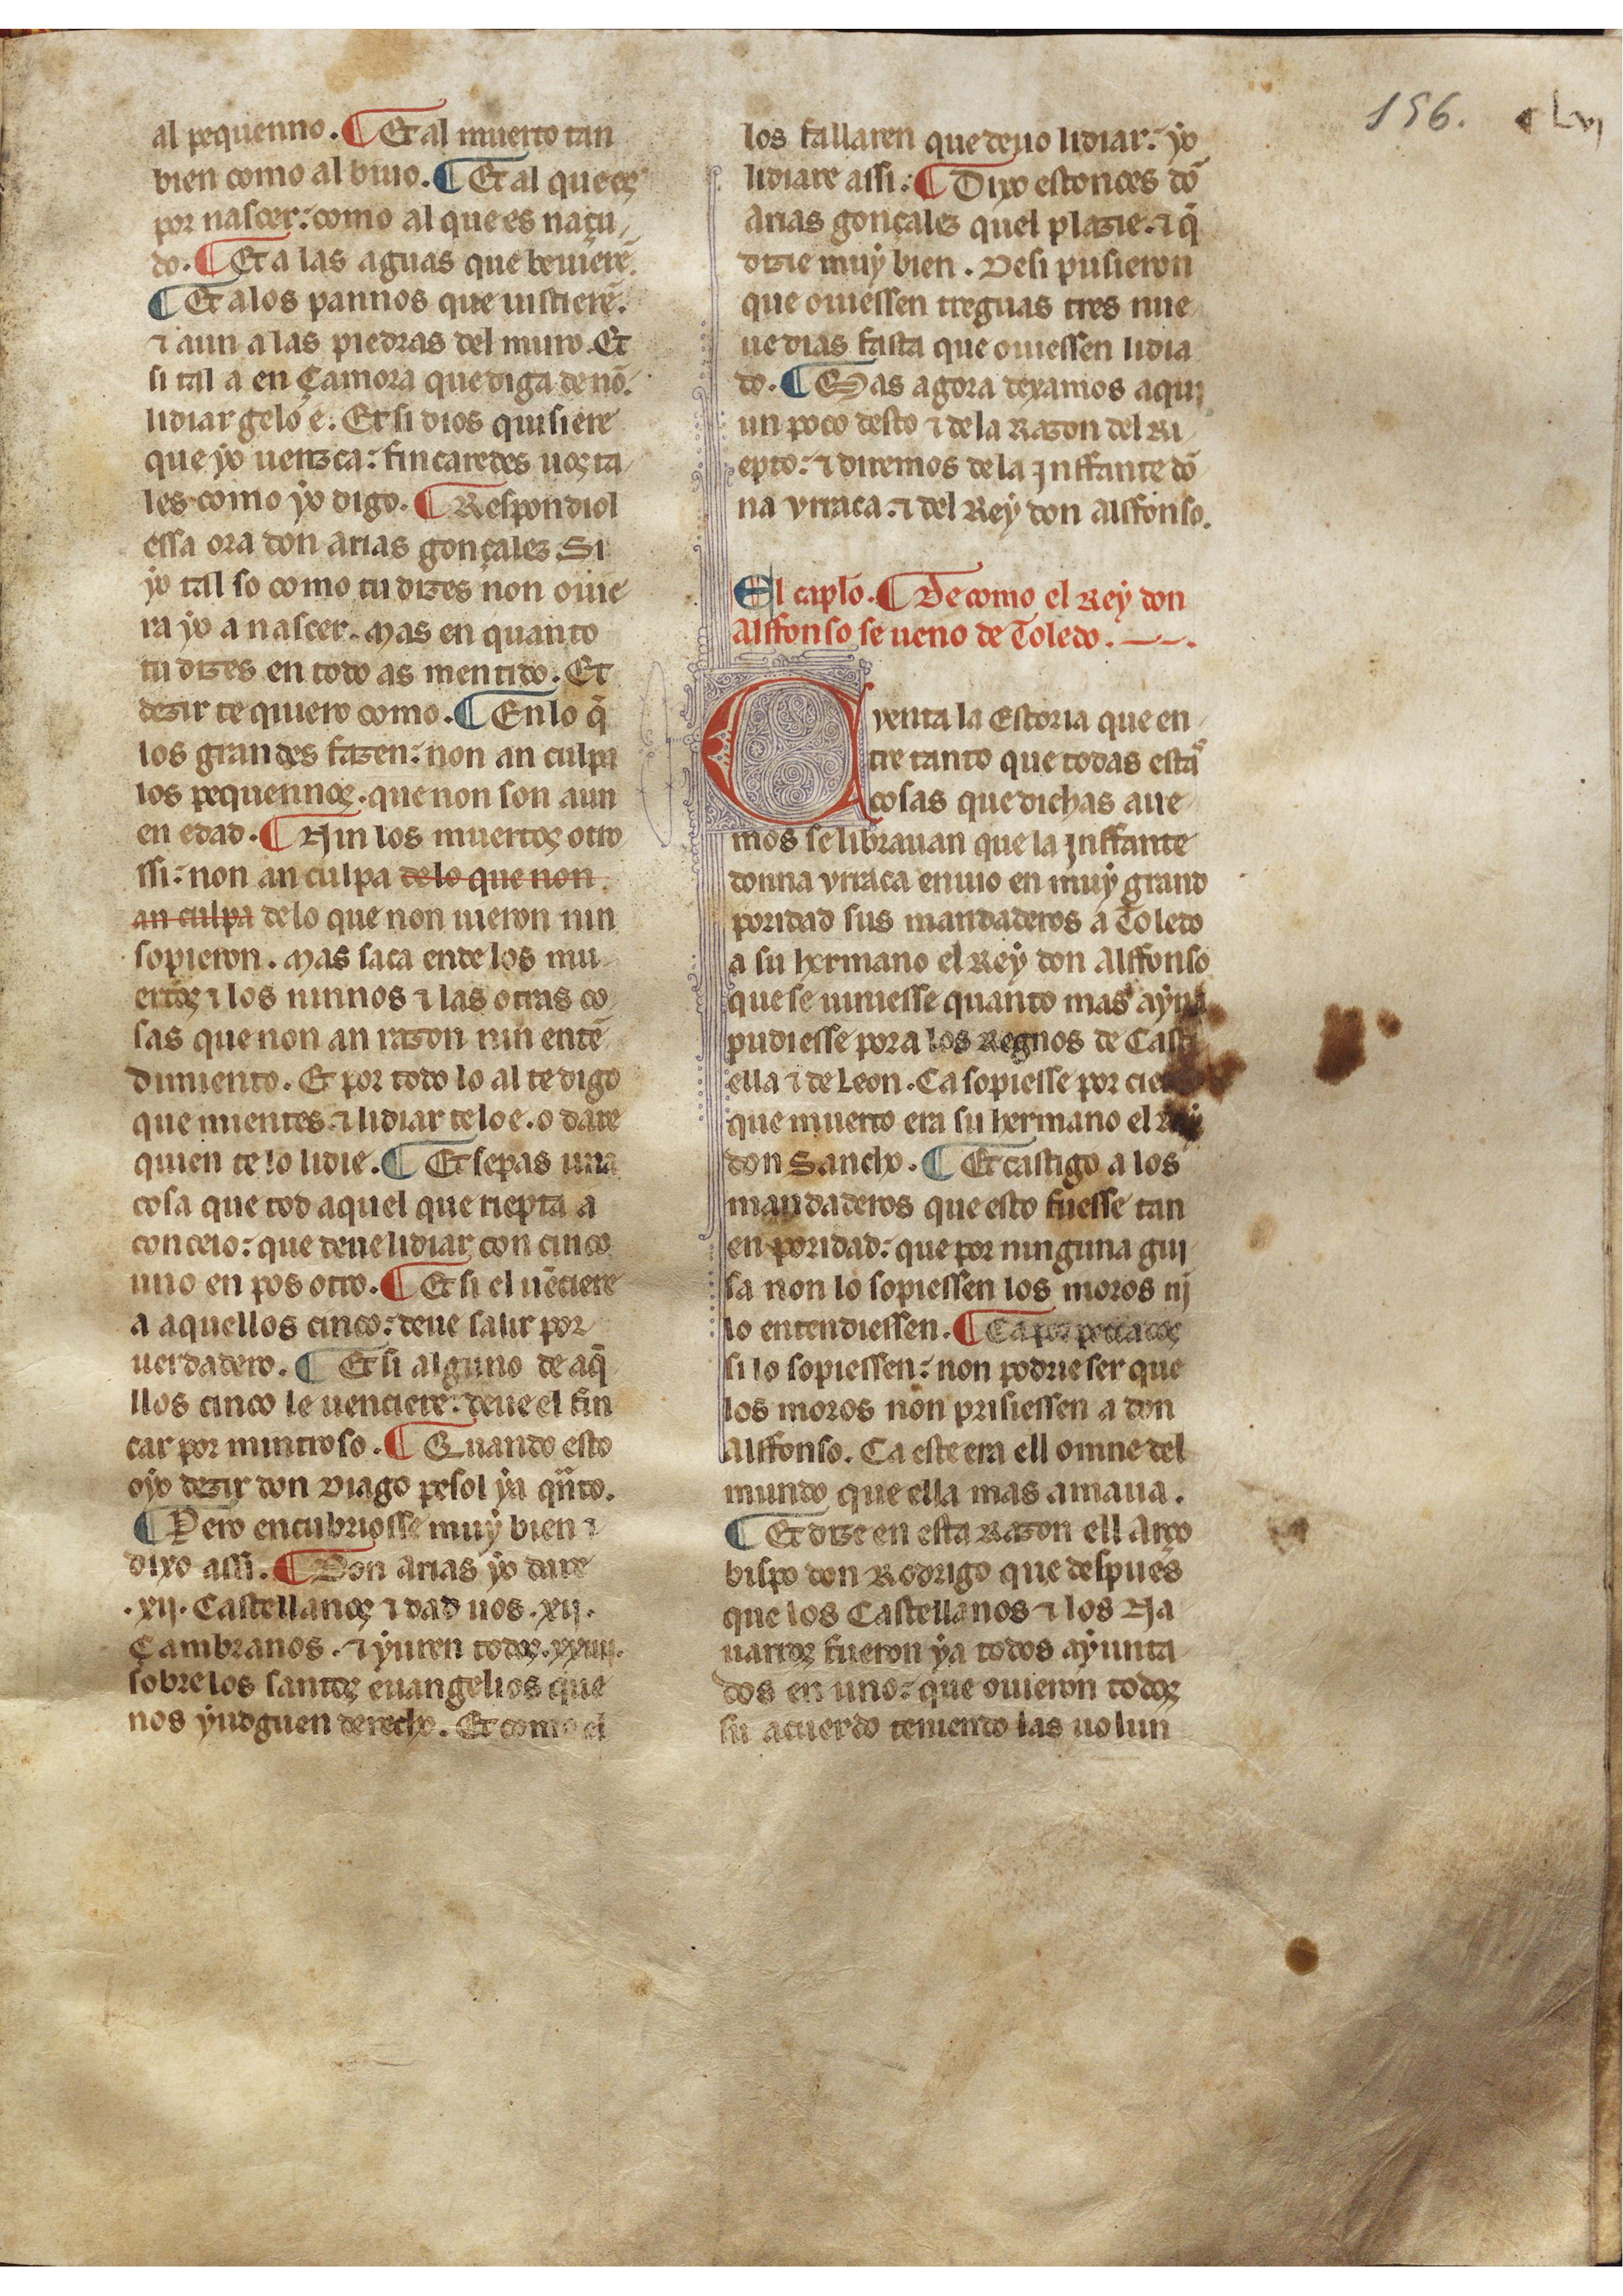 156. clvj
al pequenno. ¶ Et al muerto tan
bien como al biuo. ¶ Et al que es
por nascer: como al que es naçu-
do. ¶ Et a las aguas que beuierẽ.
¶ Et a los pannos que uistierẽ.
⁊ aun a las piedras del muro. Et
si tal a en Çamora que diga de nõ.
lidiar gelo é. Et si dios quisiere
que yo uenzca: fincaredes uos ta-
les como yo digo. ¶ Respondiol
essa ora don arias gonçalez Si
yo tal so como tu dizes non ouie-
ra yo a nascer. Mas en quanto
tu dizes en todo as mentido. Et
dezir te quiero como. ¶ En lo q̃
los grandes fazen: non an culpa
los pequennos. que non son aun
en edad. ¶ Nin los muertos otro
ssi: non an culpa de lo que non
an culpa de lo que non uieron nin
sopieron. Mas saca ende los mu-
ertos ⁊ los ninnos ⁊ las otras co-
sas que non an razon nin entẽ-
dimiento. Et por todo lo al te digo
que mientes. ⁊ lidiar te lo e. o dare
quien te lo lidie. ¶ Et sepas una
cosa que tod aquel que riepta a
conceio: que deue lidiar con cinco
uno en pos otro. ¶ Et si el uẽciere
a aquellos cinco: deue salir por
uerdadero. ¶ Et si alguno de aq̃-
llos cinco le uenciere: deue el fin
car por mintroso. ¶ Quando esto
oyo dezir don Diago pesol ya qñto.
¶ Pero encubriosse muy bien ⁊
dixo assi. ¶ Don arias yo dare
.xij. Castellanos ⁊ dad uos .xij.
Çambranos. ⁊ yuren todos .xxiiij.
sobre los santos euangelios que
nos yudguen derecho. Et como el
los fallaren que deuo lidiar: yo
lidiare assi: ¶ Dixo estonces dõ
arias gonçalez quel plazie. ⁊ q̃
dizie muy bien. Desi pusieron
que ouiessen treguas tres nue-
ue dias fasta que ouiessen lidia
do. ¶ Mas agora dexamos aqui
un poco desto ⁊ de la Razon del Ri-
epto: ⁊ diremos de la Inffante dõ
na vrraca. ⁊ del Rey don Alffonso.
El caplo. ¶ De como el Rey don
Alffonso se ueno de Toledo.
Cventa la Estoria que en-
tre tanto que todas estas
cosas que dichas aue-
mos se librauan que la Inffante
donna vrraca enuio en muy grand
poridad sus mandaderos a Toledo
a su hermano el Rey don Alffonso
que se uiniesse quanto mas ayna
pudiesse pora los Regnos de Casti
ella ⁊ de Leon. Ca sopiesse por cierto
que muerto era su hermano el Rey
don Sancho. ¶ Et castigo a los
mandaderos que esto fuesse tan
en poridad: que por ninguna gui
sa non lo sopiessen los moros nj
lo entendiessen. ¶ Ca por peccados
si lo sopiessen: non podrie ser que
los moros non prisiessen a don
Alffonso. Ca este era ell omne del
mundo que ella mas amaua.
¶ Et dize en esta Razon ell Arço
bispo don Rodrigo que despues
que los Castellanos ⁊ los Na
uarros fueron ya todos ayunta
dos en uno: que ouieron todos
su acuerdo teniendo las uolun